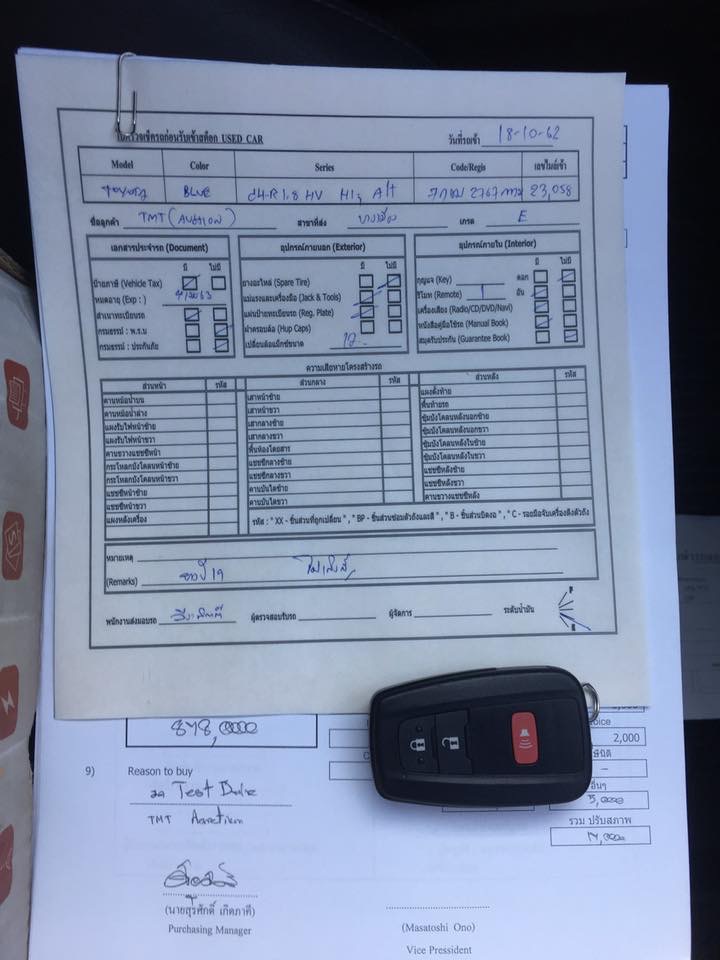 ใบตรวจเช็ครถก่อนรับเข้าสต็อก USED CAR
วันที่รถเข้า 18-10-62
Model Color Series Code/Regis เลขไมล์เข้า
TOYOTA BLUE CH-R 1.8 HV Hi, A/T 2767 กทม 23,058
ชื่อลูกค้า TMT (Auction) สาขาที่ส่ง เกรด E
เอกสารประจำรถ (Document)
มี ไม่มี
ป้ายภาษี (Vehicle Tax)
หมดอายุ (Exp : )
สำเนาทะเบียนรถ
กรมธรรม์ : พ.ร.บ
กรมธรรม์ : ประกันภัย
อุปกรณ์ภายนอก (Exterior)
มี ไม่มี
ยางอะไหล่ (Spare Tire)
แม่แรงและเครื่องมือ (Jack & Tools)
แผ่นป้ายทะเบียนรถ (Reg. Plate)
ฝาครอบล้อ (Hup Caps)
เปลี่ยนล้อแม็กซ์ขนาด
อุปกรณ์ภายใน (Interior)
มี ไม่มี
กุญแจ (Key) ดอก
รีโมท (Remote) 1 อัน
เครื่องเสียง (Radio/CD/DVD/Navi)
หนังสือคู่มือใช้รถ (Manual Book)
สมุดรับประกัน (Guarantee Book)
ความเสียหายโครงสร้างรถ
ส่วนหน้า รหัส
คานหม้อน้ำบน
คานหม้อน้ำล่าง
แผงรับไฟหน้าซ้าย
แผงรับไฟหน้าขวา
คานขวางแชชซีหน้า
กระโหลกบังโคลนหน้าซ้าย
กระโหลกบังโคลนหน้าขวา
แชชซีหน้าซ้าย
แชชซีหน้าขวา
แผงหลังเครื่อง
ส่วนกลาง รหัส
เสาหน้าซ้าย
เสาหน้าขวา
เสากลางซ้าย
เสากลางขวา
พื้นห้องโดยสาร
แชชซีกลางซ้าย
แชชซีกลางขวา
คานบันไดซ้าย
คานบันไดขวา
ส่วนหลัง รหัส
แผงตั้งท้าย
พื้นท้ายรถ
ซุ้มบังโคลนหลังนอกซ้าย
ซุ้มบังโคลนหลังนอกขวา
ซุ้มบังโคลนหลังในซ้าย
ซุ้มบังโคลนหลังในขวา
แชชซีหลังซ้าย
แชชซีหลังขวา
คานขวางแชชซีหลัง
รหัส : " XX - ชิ้นส่วนที่ถูกเปลี่ยน " , " BP - ชิ้นส่วนซ่อมตัวถังและสี " , " B - ชิ้นส่วนบิดงอ " , " C - รอยมือจับเครื่องดึงตัวถัง
หมายเหตุ
(Remarks) จดปี 19
พนักงานส่งมอบรถ ผู้ตรวจสอบรับรถ ผู้จัดการ ระดับน้ำมัน
F
E
878,000
2,000
9) Reason to buy
รถ Test Drive
TMT Auction
–
อื่นๆ
5,000
รวม ปรับสภาพ
17,000
(นายสุรศักดิ์ เกิดภาคี)
Purchasing Manager
(Masatoshi Ono)
Vice Pressident